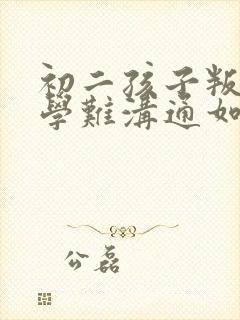 初二孩子叛
學難溝通如
公磊